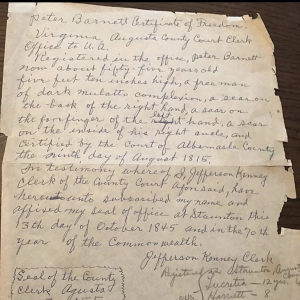 Peter Barnett Certificate of Freedom
Virginia, Augusta County Court Clerk
Office to U.A.
Registered in the office, Peter Barnett
now about fifty-five years old
five feet ten inches high, a free man
of dark mulatto complexion, a scar on
the back of the right hand a scar on
the forfinger of the left hand, a scar
on the inside of his right ancle, and
certified by the Court of Albemarle County
the ninth day of August 1815.
In testimony whereof I, Jefferson Kenney
Clerk of the County Court aforesaid, have
hereunto subscribed my name and
affixed my seal of office at Staunton this
13th day of October 1845 and in the 70th
year of the Commonwealth.
Jefferson Kenney Clerk
Registered at Staunton, August
Seal of the County
Clerk, Agusta
Lucretia - 12 yrs
Harriett - 8